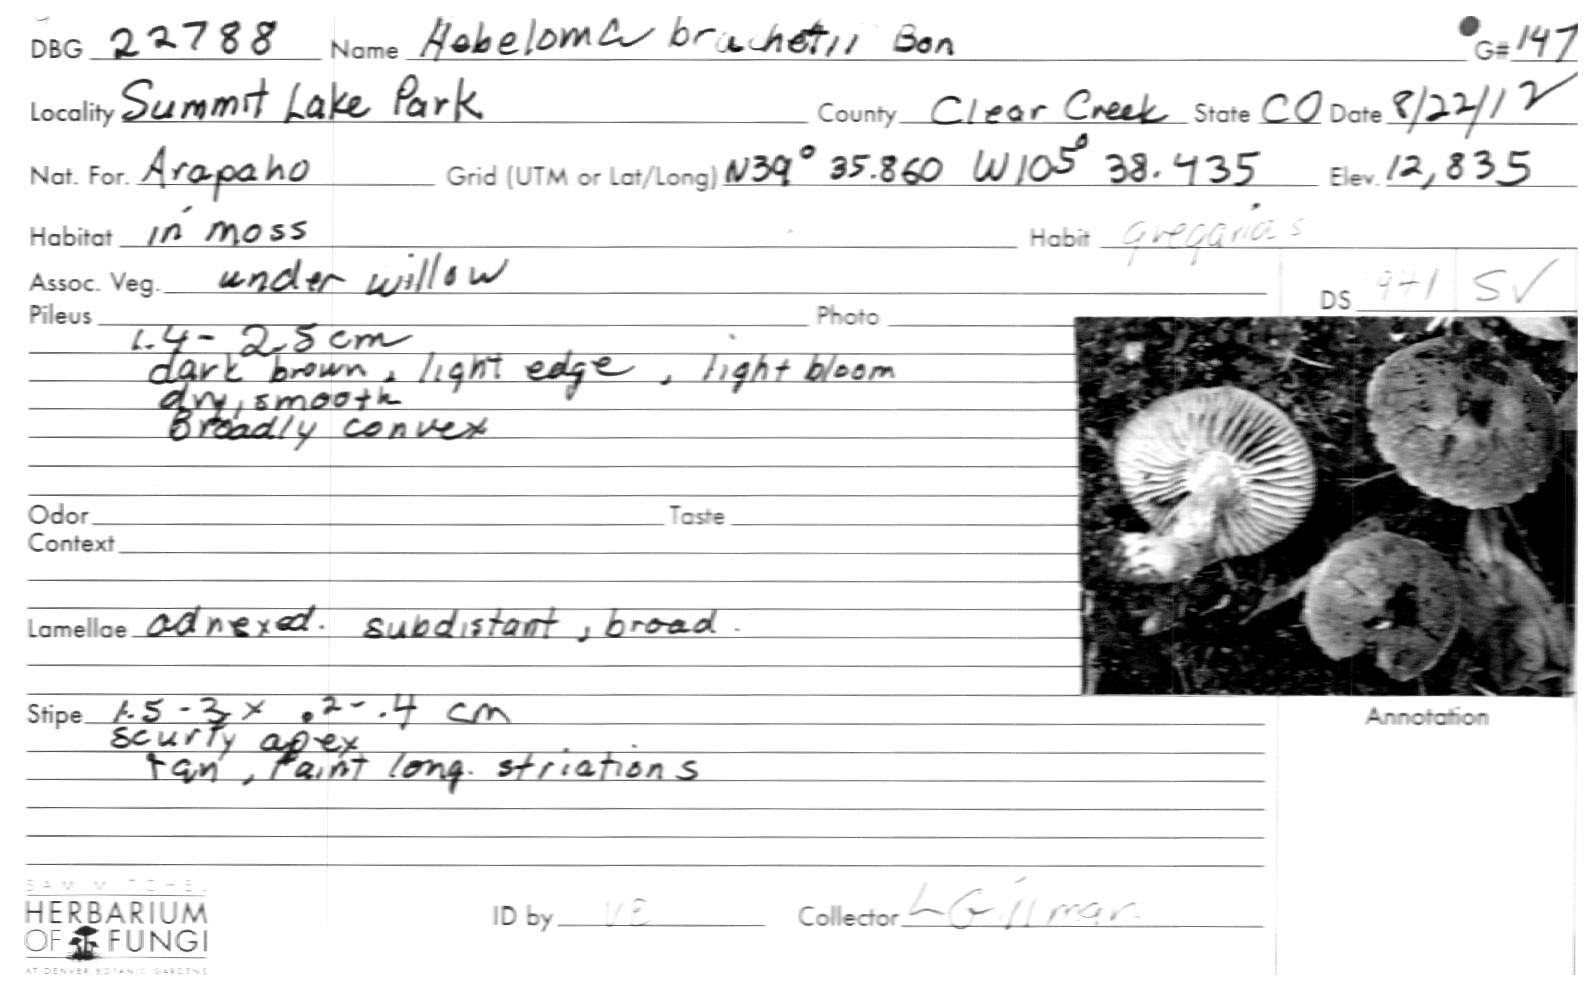 DBG 22788 Name Hebeloma bruchetii Bon G# 147
Locality Summit Lake Park County Clear Creek State CO Date 8/22/12
Nat. For. Arapaho Grid (UTM or Lat/Long) N39° 35.860 W105° 38.435 Elev. 12,835
Habitat in moss Habit gregarious
Assoc. Veg. under willow
DS 941 SV
Pileus Photo
1.4 - 2.5 cm
dark brown, light edge, light bloom
dry, smooth
Broadly convex
Odor Taste
Context
Lamellae adnexed. subdistant, broad.
Stipe 1.5 - 3 x .2 - .4 cm
scurfy apex
tan, faint long. striations
Annotation
SAM MITCHEL
HERBARIUM
OF FUNGI
AT DENVER BOTANIC GARDENS
ID by VE Collector L Gillman